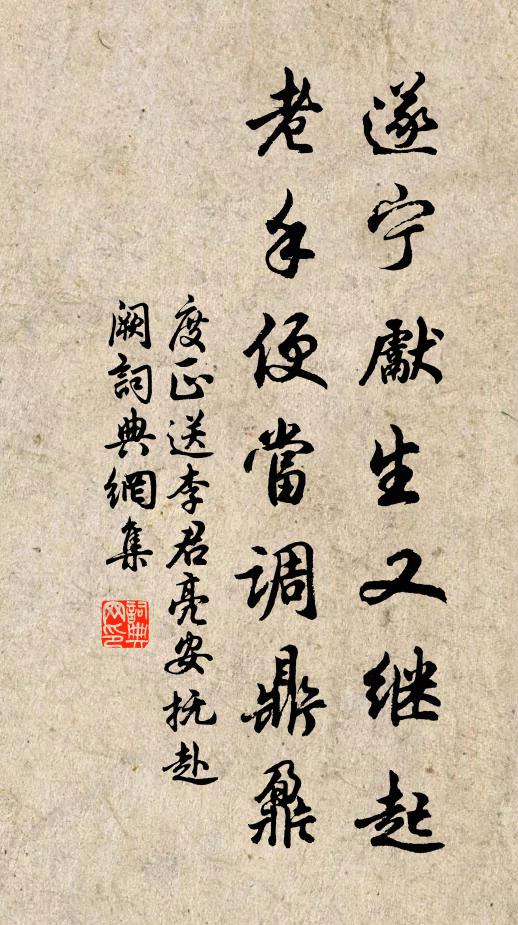 遂宁獻生又继起
老手便當调鼎鼐
度正送李君亮安抚赴
阙詞典網集
詞典网印